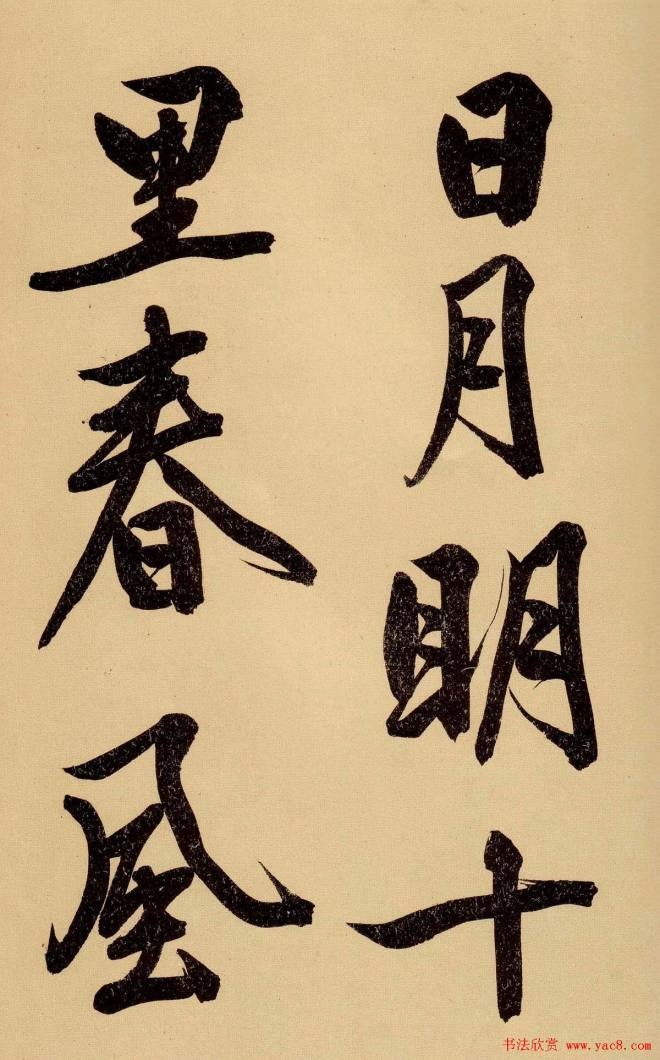 日月明十
里春風
书法欣赏 www.yac8.com